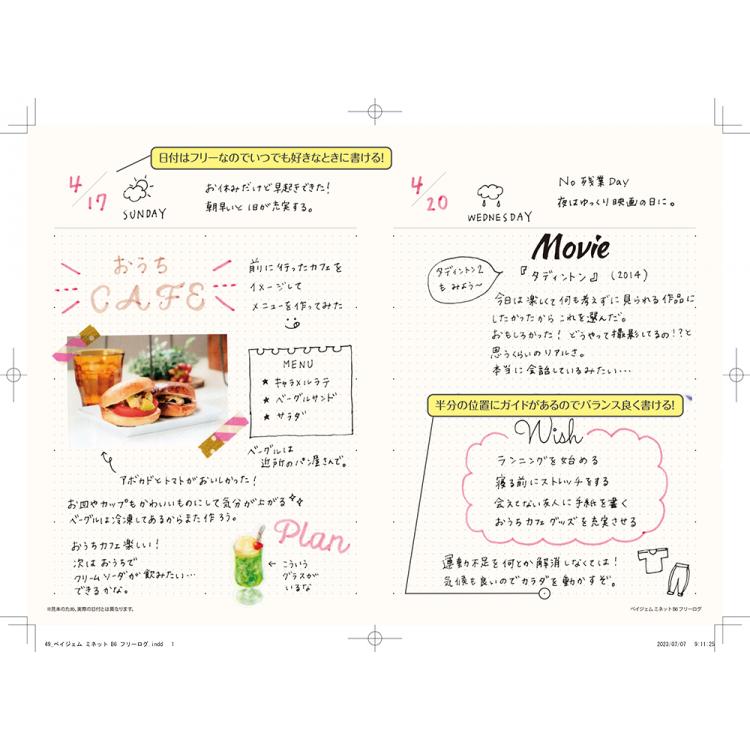 日付はフリーなのでいつでも好きなときに書ける!
4/17
SUNDAY
お休みだけど早起きできた!
朝早いと1日が充実する。
おうち
CAFE
前に行ったカフェを
イメージして
メニューを作ってみた
MENU
★ キャラメルラテ
★ ベーグルサンド
★ サラダ
ベーグルは
近所のパン屋さんで。
アボカドとトマトがおいしかった!
お皿やカップもかわいいものにして気分が上がる
ベーグルは冷凍してあるからまた作ろう。
おうちカフェ楽しい!
次はおうちで
クリームソーダが飲みたい…
できるかな。
Plan
← こういう
グラスが
いるな
※見本のため、実際の日付とは異なります。
4/20
WEDNESDAY
No 残業 Day
夜はゆっくり映画の日に。
Movie
タディントン2
も みよう〜
『タディントン』(2014)
今日は楽しくて何も考えずに見られる作品に
したかったから これを選んだ。
おもしろかった! どうやって撮影してるの!?と
思うくらいのリアルさ。
本当に会話しているみたい…
半分の位置にガイドがあるのでバランス良く書ける!
Wish
ランニングを始める
寝る前にストレッチをする
会えてない友人に手紙を書く
おうちカフェグッズを充実させる
運動不足を何とか解消しなくては!
気候も良いのでカラダを動かすぞ。
ペイジェム ミネット B6 フリーログ
49_ペイジェム ミネット B6 フリーログ.indd 1
2023/07/07 9:11:25